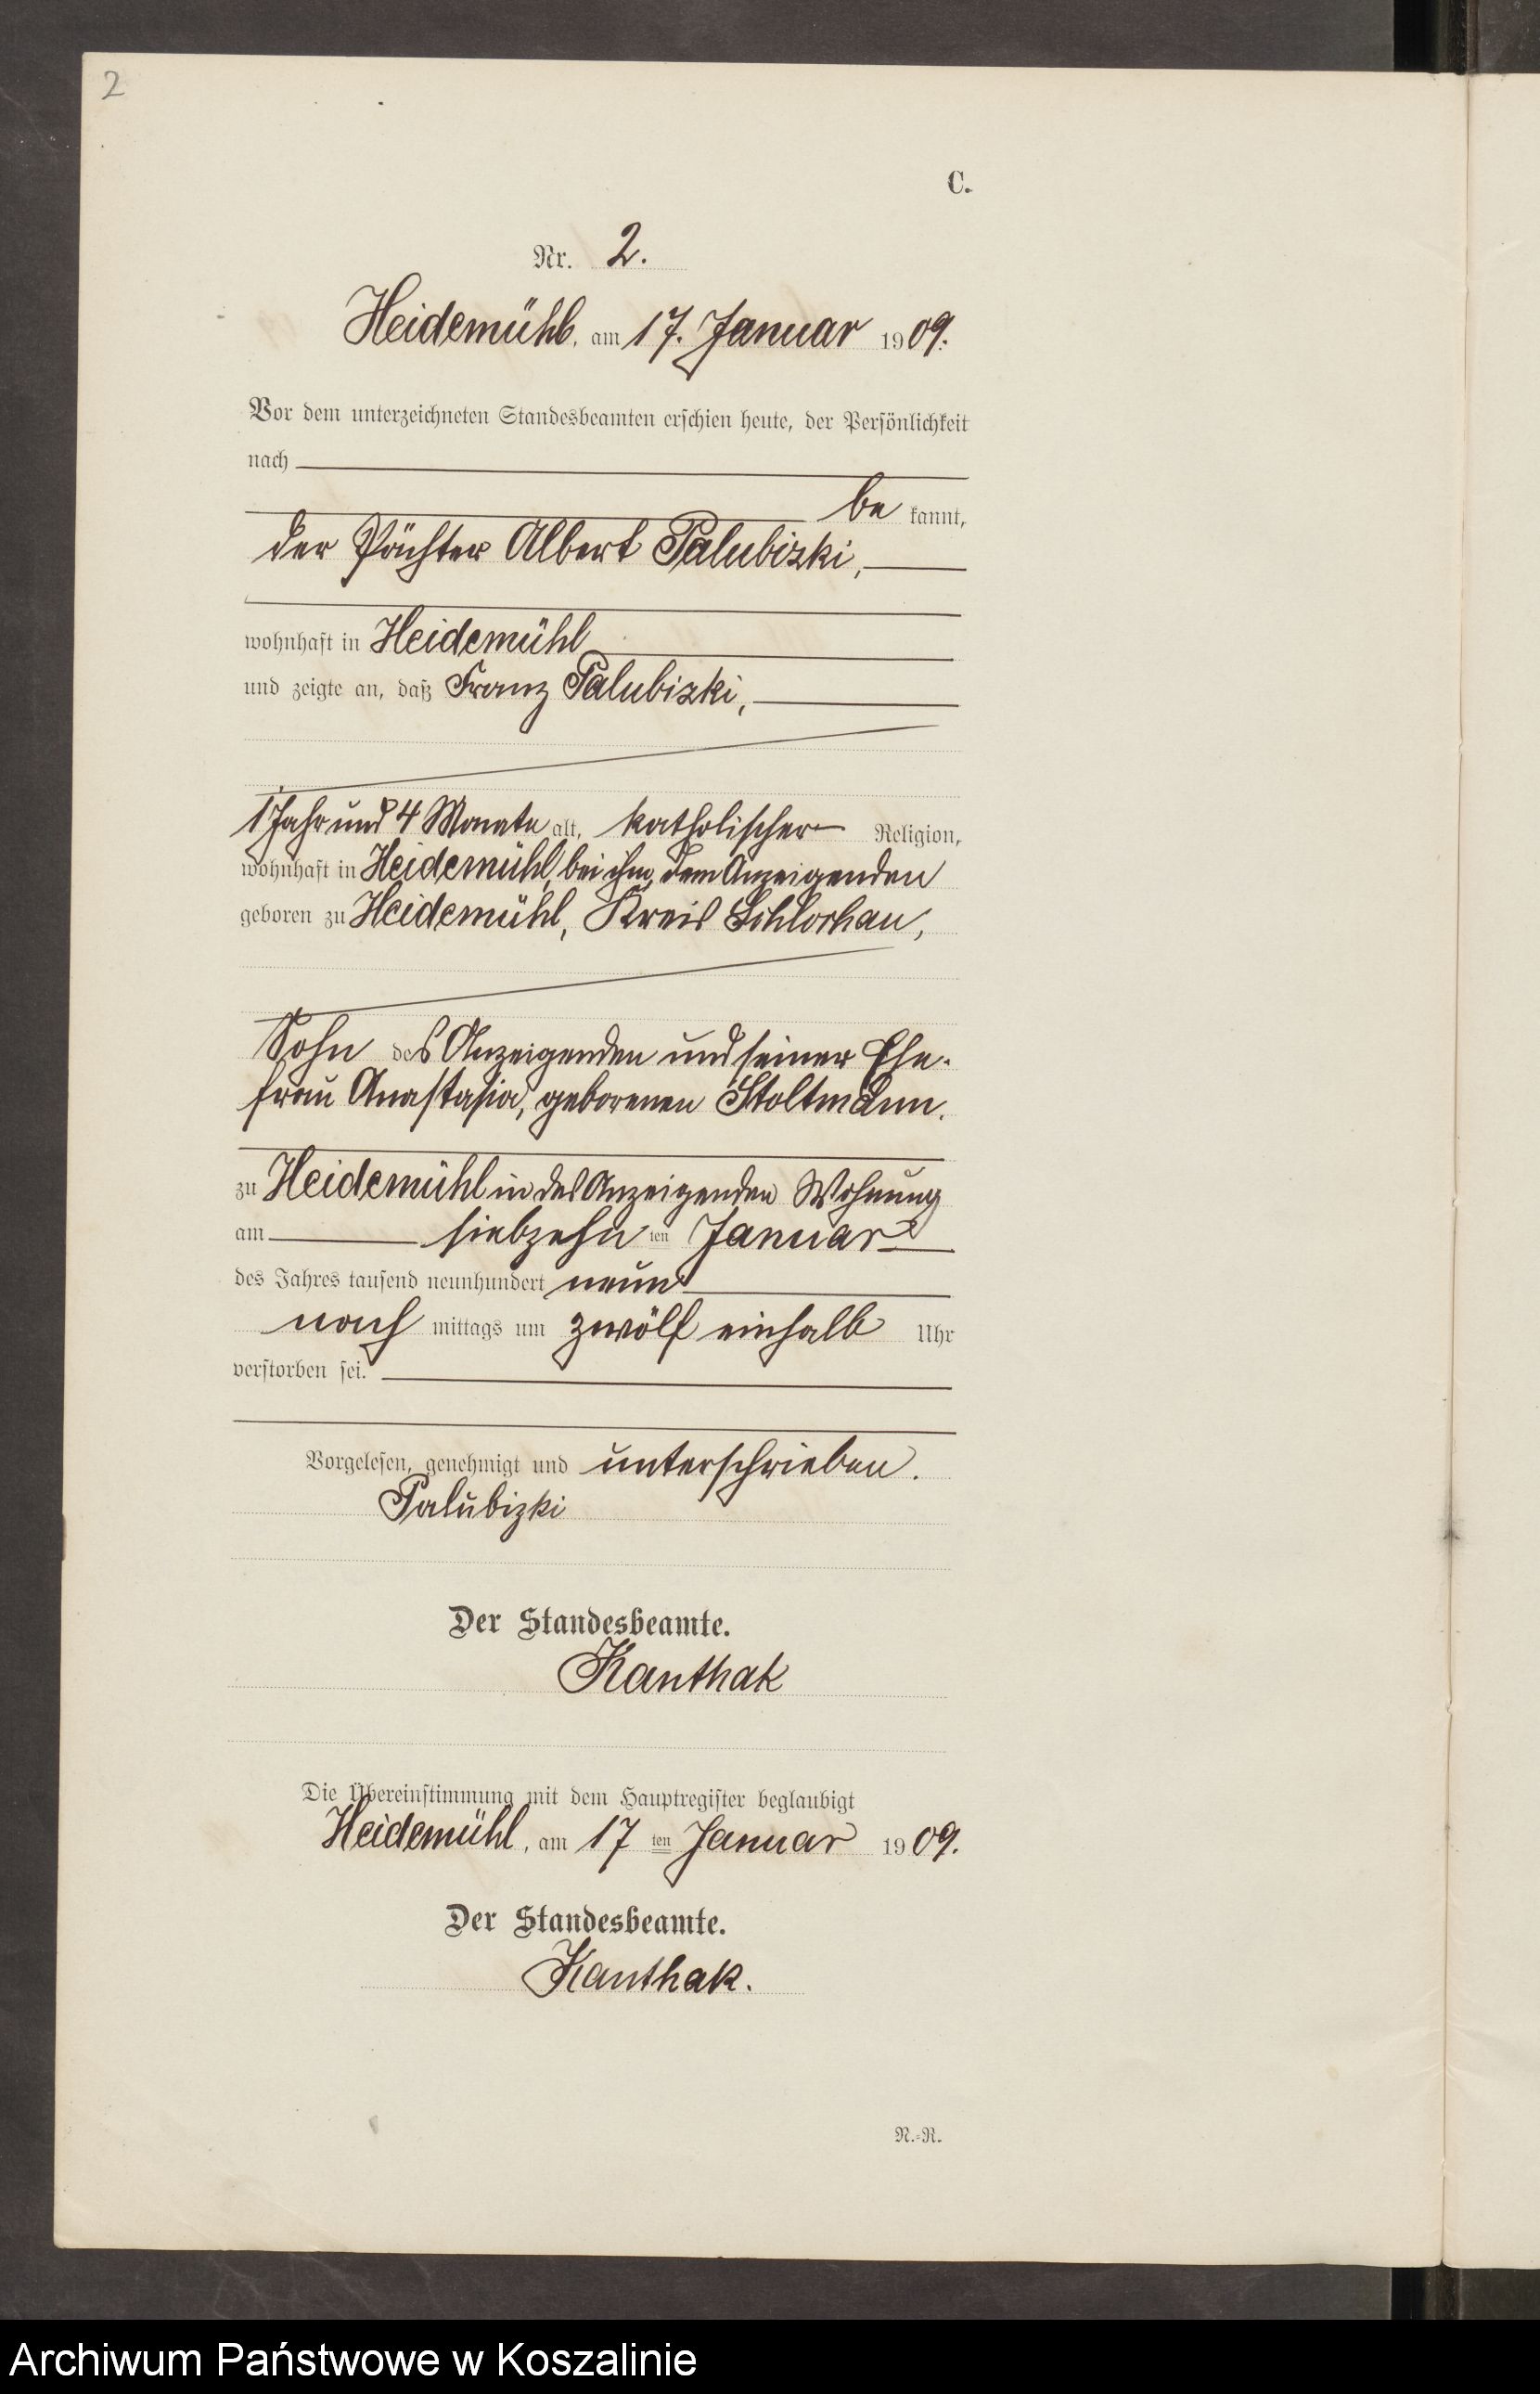 2
C.
Nr. 2.
Heidemühl, am 17. Januar 1909.
Vor dem unterzeichneten Standesbeamten erschien heute, der Persönlichkeit
nach
be kannt,
der Pächter Albert Palubizki,
wohnhaft in Heidemühl
und zeigte an, daß Franz Palubizki,
1 Jahr und 4 Monate alt, katholischer Religion,
wohnhaft in Heidemühl, bei ihm, dem Anzeigenden
geboren zu Heidemühl, Kreis Schlochau,
Sohn des Anzeigenden und seiner Ehe-
frau Anastasia, geborenen Stoltmann.
zu Heidemühl in des Anzeigenden Wohnung
am siebzehn ten Januar
des Jahres tausend neunhundert neun
nach mittags um zwölf einhalb Uhr
verstorben sei.
Vorgelesen, genehmigt und unterschrieben.
Palubizki
Der Standesbeamte.
Kanthak
Die Übereinstimmung mit dem Hauptregister beglaubigt
Heidemühl, am 17 ten Januar 1909.
Der Standesbeamte.
Kanthak.
N.-R.
Archiwum Państwowe w Koszalinie